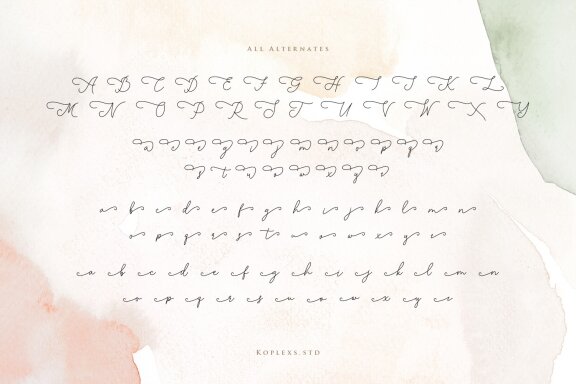 All Alternates
A B C D E F G H I J K L
M N O P R S T U V W X Y
a b c d e f g h i j k l m n
o p q r s t u v w x y z
a b c d e f g h i j k l m n
o p q r s u v w x y z
Koplexs.std